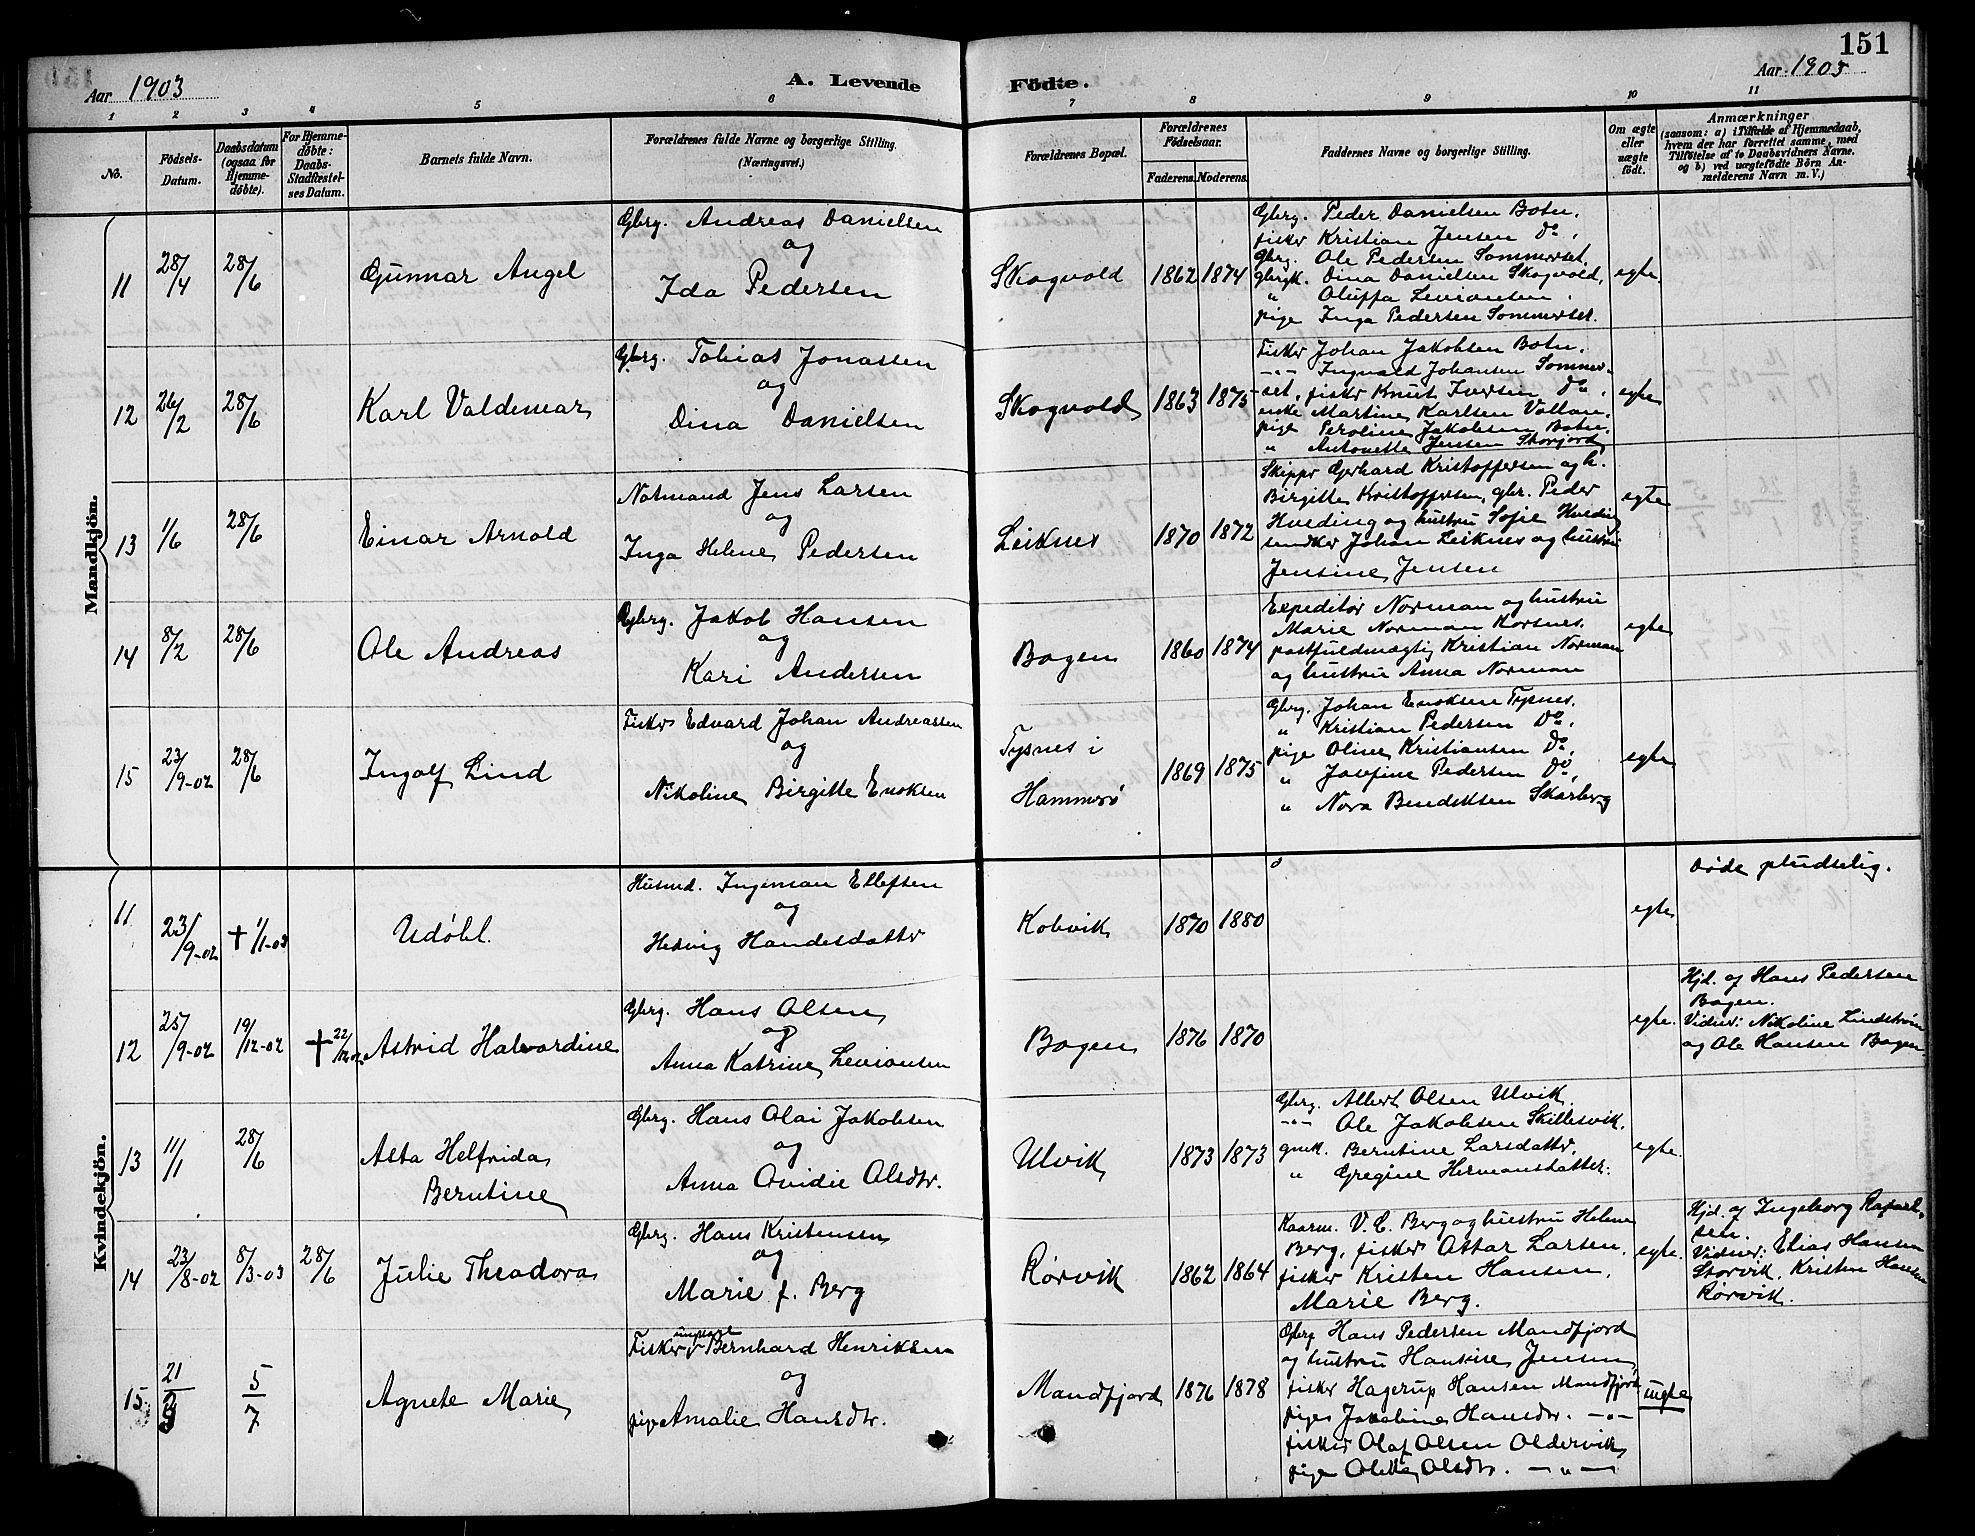 151
Aar 1903
A. Levende
Fødte.
Aar 1903
1 2 3 4 5 6 7 8 9 10 11
No.
Fødsels-
Datum.
Daabsdatum
(ogsaa for
Hjemme-
døbte).
For Hjemme-
døbte:
Daabs-
Stadfæstel-
ses Datum.
Barnets fulde Navn.
Forældrenes fulde Navne og borgerlige Stilling.
(Næringsvei.)
Forældrenes Bopæl.
Forældrenes
Fødselsaar.
Faderens. Moderens.
Faddernes Navne og borgerlige Stilling.
Om ægte
eller
uægte
født.
Anmærkninger
(saasom: a) i Tilfælde af Hjemmedaab,
hvem der har forrettet samme, med
Tilføielse af to Daabsvidners Navne,
og b) ved uægtefødte Børn An-
melderens Navn m. V.)
Mandkjön.
11
28/4
28/6
Gunnar Angel
Gbrg. Andreas Danielsen
og
Ida Pedersen
Skogvold
1862 1874
Gbrg. Peder Danielsen Botn.
fisker Kristian Jensen Do.
Gbrg. Ole Pedersen Sommerset.
Gbrgk. Dina Danielsen Skogvold,
" Oluffa Levionsen.
pige Inga Pedersen Sommerset.
egte.
12
26/2
28/6
Karl Valdemar
Gbrg. Tobias Jonassen
og
Dina Danielsen
Skogvold
1863 1875
Fisker Johan Jakobsen Botn.
-"- Ingvald Johansen Sommer-
set, fisker Knut Iversen Do.
enke Martine Karlsen Vollan.
pige Peroline Jakobsen Botn.
" Antonette Jensen Storjord
egte
13
1/6
28/6
Einar Arnold
Notmand Jens Larsen
og
Inga Helene Pedersen
Leiknes
1870 1872
Skipper Gerhard Kristoffersen og h.
Birgitte Kristoffersen, gbr. Peder
Hveding og hustru Sofie Hveding
Johan Leiknes og hustru
Jensine Jensen
egte
14
8/2
28/6
Ole Andreas
Gbrg. Jakob Hansen
og
Kari Andersen
Bogen
1860 1874
Expeditør Norman og hustru
Marie Norman Korsnes.
postfuldmægtig Kristian Norman
og hustru Anna Norman
egte
15
23/9-02
28/6
Ingolf Lind
Fisker Edvard Johan Andreassen
og
Nikoline Birgitte Enoksen
Tysnes i
Hammerø
1869 1875
Gbrg. Johan Enoksen Tysnes.
" Kristian Pedersen Do.
pige Oline Kristiansen Do.
" Josefine Pedersen Do.
" Nora Bendiksen Skarberg
egte
Kvindekjön.
11
23/9-02
† 1/1-03
Udöbt.
Husmd. Ingeman Ellefsen
og
Hedvig Handesdatter
Kobvik
1870 1880
egte
Døde pludselig.
12
25/9-02
19/12-02
† 22/12-02
Astrid Halvardine
Gbrg. Hans Olsen
og
Anna Katrine Levionsen
Bogen
1876 1870
egte.
Hjd. af Hans Pedersen
Bogen.
Vidner: Nikoline Lindstrøm
og Ole Hansen Bogen
13
11/1
28/6
Asta Helfrida
Berntine
Gbrg. Hans Olai Jakobsen
og
Anna Ovidie Olsdtr.
Ulvik
1873 1873
Gbrg. Albert Olsen Ulvik.
-"- Ole Jakobsen Skillesvik.
gmk. Berntine Larsdatter.
" Gregine Hermansdatter.
egte.
14
23/8-02
8/3-03
28/6
Julie Theodora
Gbrg. Hans Kristensen
og
Marie f. Berg
Rørvik
1862 1864
Kaarm. V. C. Berg og hustru Helene
Berg, fisker Ottar Larsen,
fisker Kristen Hansen,
Marie Berg.
egte.
Hjd. af Ingeborg Rafael-
sen.
Vidner: Elias Hansen
Storvik, Kristen Hansen
Rørvik.
15
21/3
5/7
Agnete Marie
Fisker ungkarl Bernhard Henriksen
og
pige Amalie Hansdtr.
Mandfjord
1876 1878
Gbrg Hans Pedersen Mandfjord
og hustru Hansine Jensen,
fisker Hagerup Hansen Mandfjord
pige Jakobine Hansdtr. -"-
fisker Olaf Olsen Oldervik,
pige Oletta Olsdtr. -"-
uegte